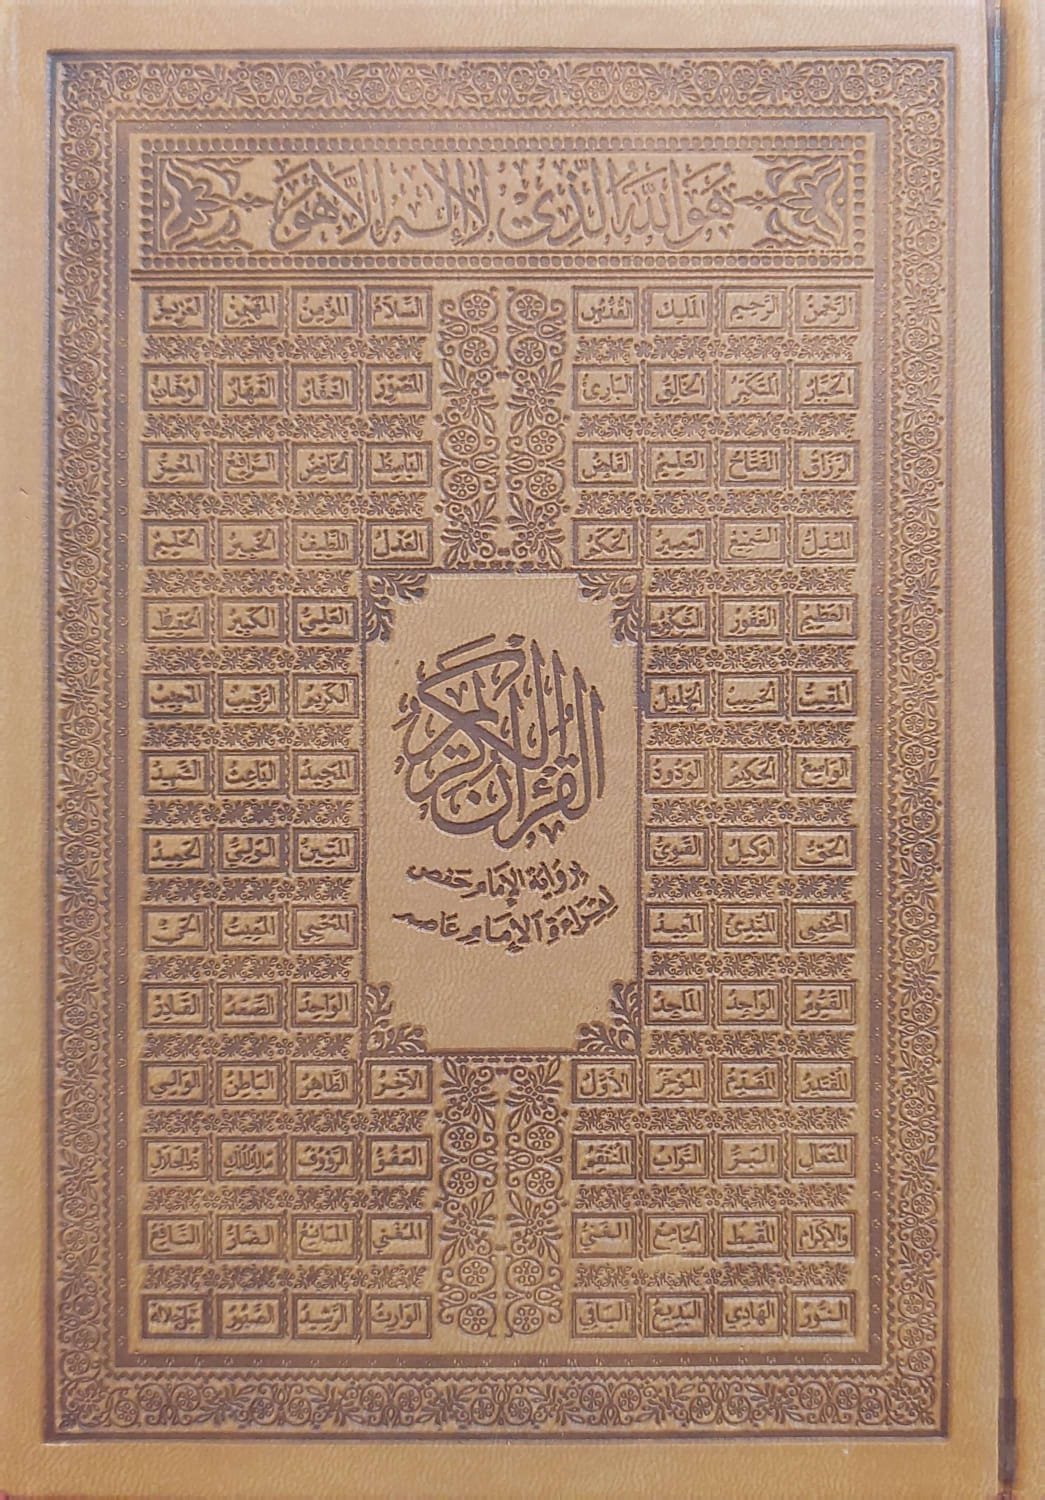 هُوَ اللهُ الَّذِي لَا إِلٰهَ إِلَّا هُوَ
الرَّحْمٰنُ الرَّحِيمُ المَلِكُ القُدُّوسُ السَّلَامُ المُؤْمِنُ المُهَيْمِنُ العَزِيزُ
الجَبَّارُ المُتَكَبِّرُ الخَالِقُ البَارِئُ المُصَوِّرُ الغَفَّارُ القَهَّارُ الوَهَّابُ
الرَّزَّاقُ الفَتَّاحُ العَلِيمُ القَابِضُ البَاسِطُ الخَافِضُ الرَّافِعُ المُعِزُّ
المُذِلُّ السَّمِيعُ البَصِيرُ الحَكَمُ العَدْلُ اللَّطِيفُ الخَبِيرُ الحَلِيمُ
العَظِيمُ الغَفُورُ الشَّكُورُ العَلِيُّ الكَبِيرُ الحَفِيظُ
المُقِيتُ الحَسِيبُ الجَلِيلُ الكَرِيمُ الرَّقِيبُ المُجِيبُ
الوَاسِعُ الحَكِيمُ الوَدُودُ المَجِيدُ البَاعِثُ الشَّهِيدُ
الحَقُّ الوَكِيلُ القَوِيُّ المَتِينُ الوَلِيُّ الحَمِيدُ
المُحْصِي المُبْدِئُ المُعِيدُ المُحْيِي المُمِيتُ الحَيُّ
القَيُّومُ الوَاجِدُ المَاجِدُ الوَاحِدُ الصَّمَدُ القَادِرُ
المُقْتَدِرُ المُقَدِّمُ المُؤَخِّرُ الأَوَّلُ الآخِرُ الظَّاهِرُ البَاطِنُ الوَالِي
المُتَعَالِ البَرُّ التَّوَّابُ المُنْتَقِمُ العَفُوُّ الرَّؤُوفُ مَالِكُ المُلْكِ ذُو الجَلَالِ
وَالإِكْرَامِ المُقْسِطُ الجَامِعُ الغَنِيُّ المُغْنِي المَانِعُ الضَّارُّ النَّافِعُ
النُّورُ الهَادِي البَدِيعُ البَاقِي الوَارِثُ الرَّشِيدُ الصَّبُورُ جَلَّ جَلَالُهُ
القُرْآنُ الكَرِيمُ
برواية الإمام حفص
لقراءة الإمام عاصم